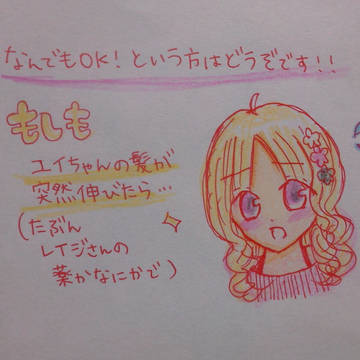 なんでもOK！という方はどうぞです！！
もしも
ユイちゃんの髪が
突然伸びたら…
（たぶん
レイジさんの
薬かなにかで）